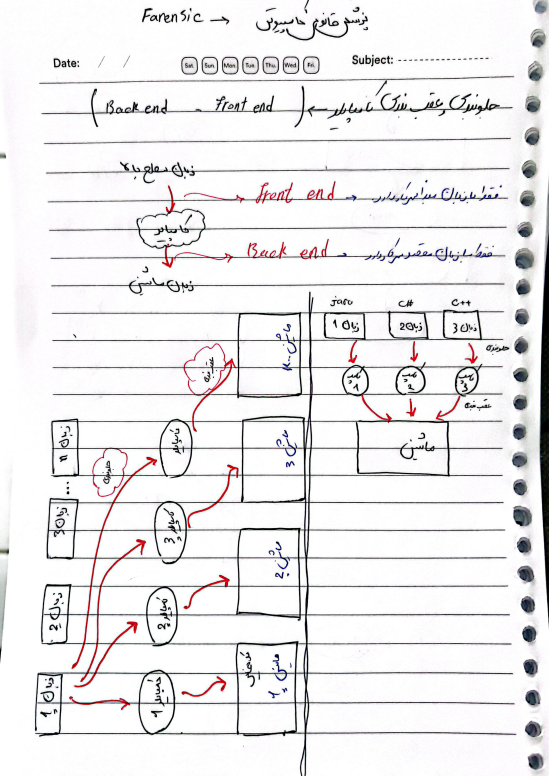 Farensic → پزشکی قانونی کامپیوتری
Date: / /
Sat. Sun. Mon. Tue. Thu. Wed Fri.
Subject:
جلوبندی و عقب بندی کامپایلر ← (Back end - front end)
زبان سطح بالا
front end → فقط با زبان مبدا سر و کار دارد
کامپایلر
Back end → فقط با زبان مقصد سر و کار دارد
زبان ماشین
Java C# C++
زبان 1 زبان 2 زبان 3
جلوبندی
کامپ 1 کامپ 2 کامپ 3
عقب بندی
ماشین
ماشین n
عقب بندی
زبان n
جلوبندی
کامپایلر
ماشین 3
...
زبان 3
کامپایلر 3
ماشین 2
زبان 2
کامپایلر 2
زبان 1
کامپایلر 1
ماشین 1